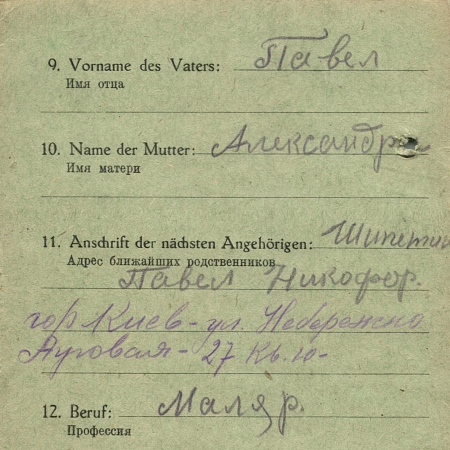 9. Vorname des Vaters: Павел
Имя отца
10. Name der Mutter: Александра
Имя матери
11. Anschrift der nächsten Angehörigen: Шипетин
Адрес ближайших родственников
Павел Никофор.
гор Киев - ул. Набережно
Луговая - 27 кв. 10 -
12. Beruf: Маляр.
Профессия